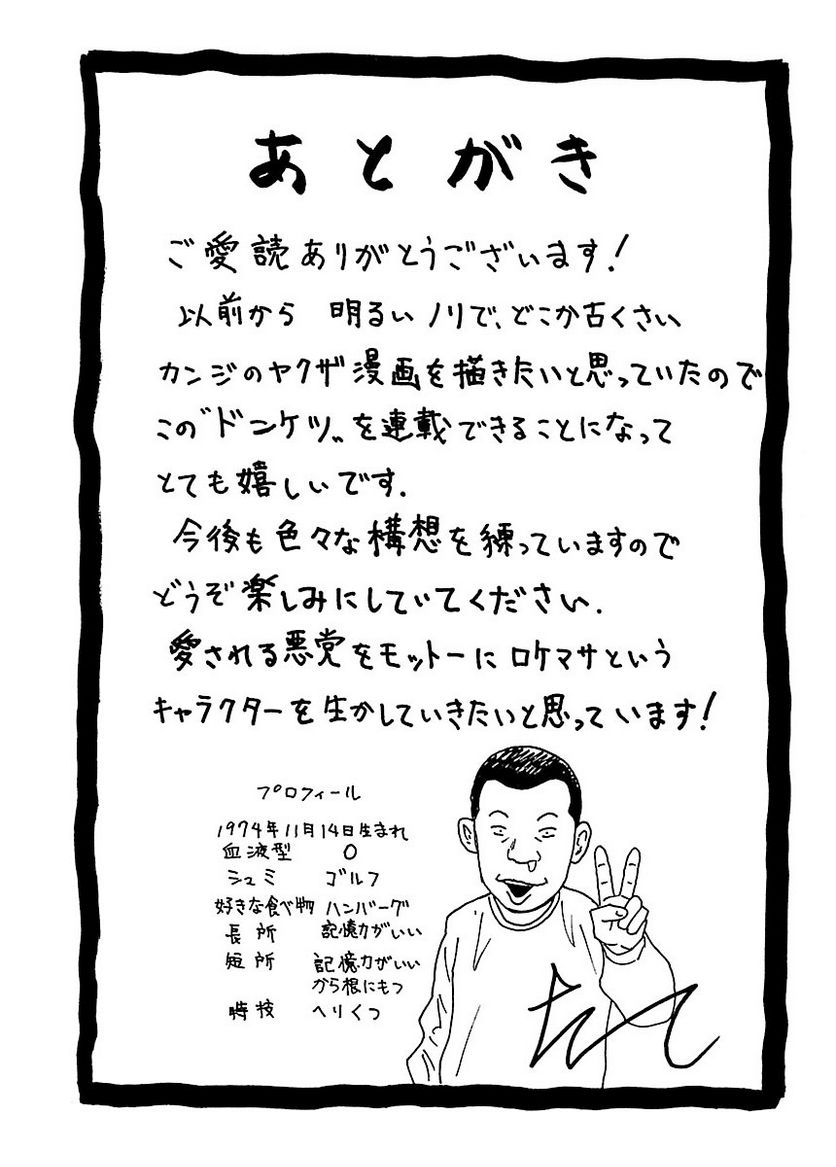 あとがき
ご愛読ありがとうございます!
以前から 明るいノリで、どこか古くさい
カンジのヤクザ漫画を描きたいと思っていたので
この〝ドンケツ〟を連載できることになって
とても嬉しいです.
今後も色々な構想を練っていますので
どうぞ楽しみにしていてください.
愛される悪党をモットーにロケマサという
キャラクターを生かしていきたいと思っています!
プロフィール
1974年11月14日生まれ
血液型 O
シュミ ゴルフ
好きな食べ物 ハンバーグ
長所 記憶力がいい
短所 記憶力がいい
から根にもつ
特技 へりくつ